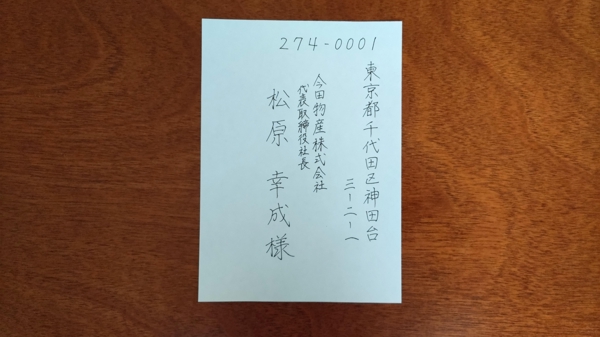 274-0001
東京都千代田区神田台
三-二-一
今田物産株式会社
代表取締役社長
松原 幸成様